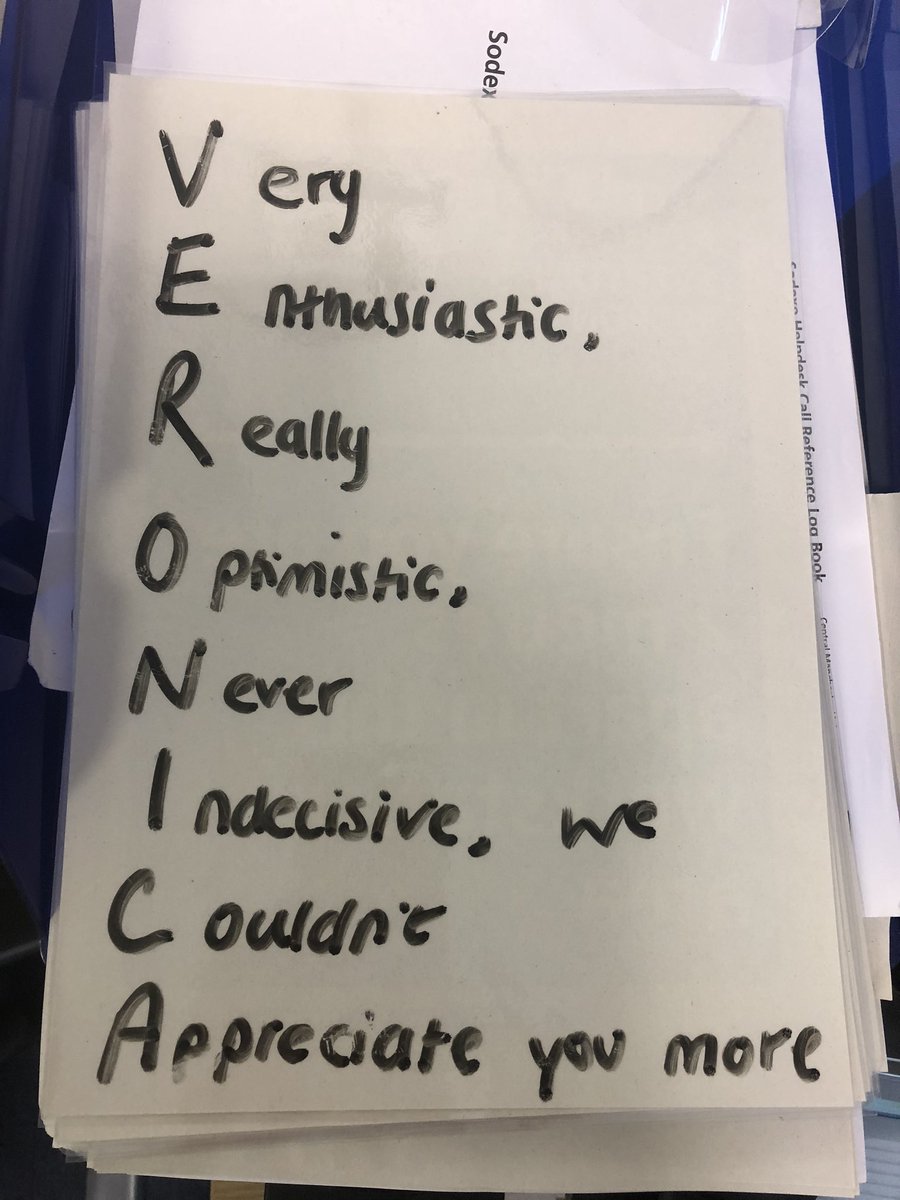 Sodex
Very
Enthusiastic,
Really
Optimistic,
Never
Indecisive, we
Couldn't
Appreciate you more
Sodexo Helpdesk Call Reference Log Book
Central